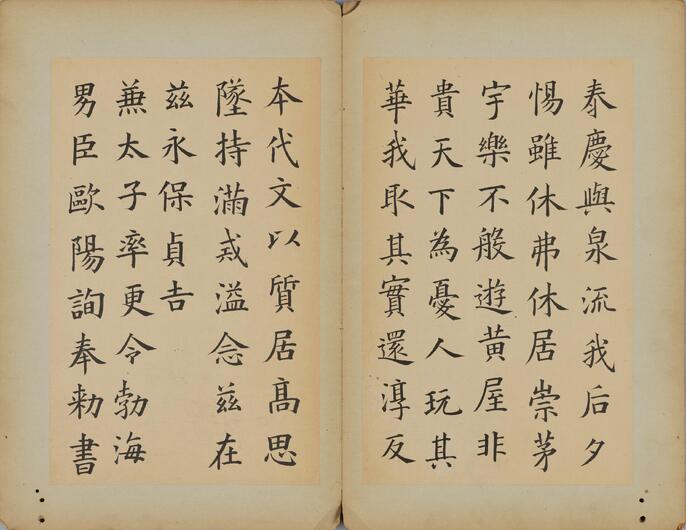 泰慶與泉流我后夕
惕雖休弗休居崇茅
宇樂不般遊黃屋非
貴天下為憂人玩其
華我取其實還淳反
本代文以質居高思
墜持滿戒溢念茲在
茲永保貞吉
兼太子率更令勃海
男臣歐陽詢奉勑書